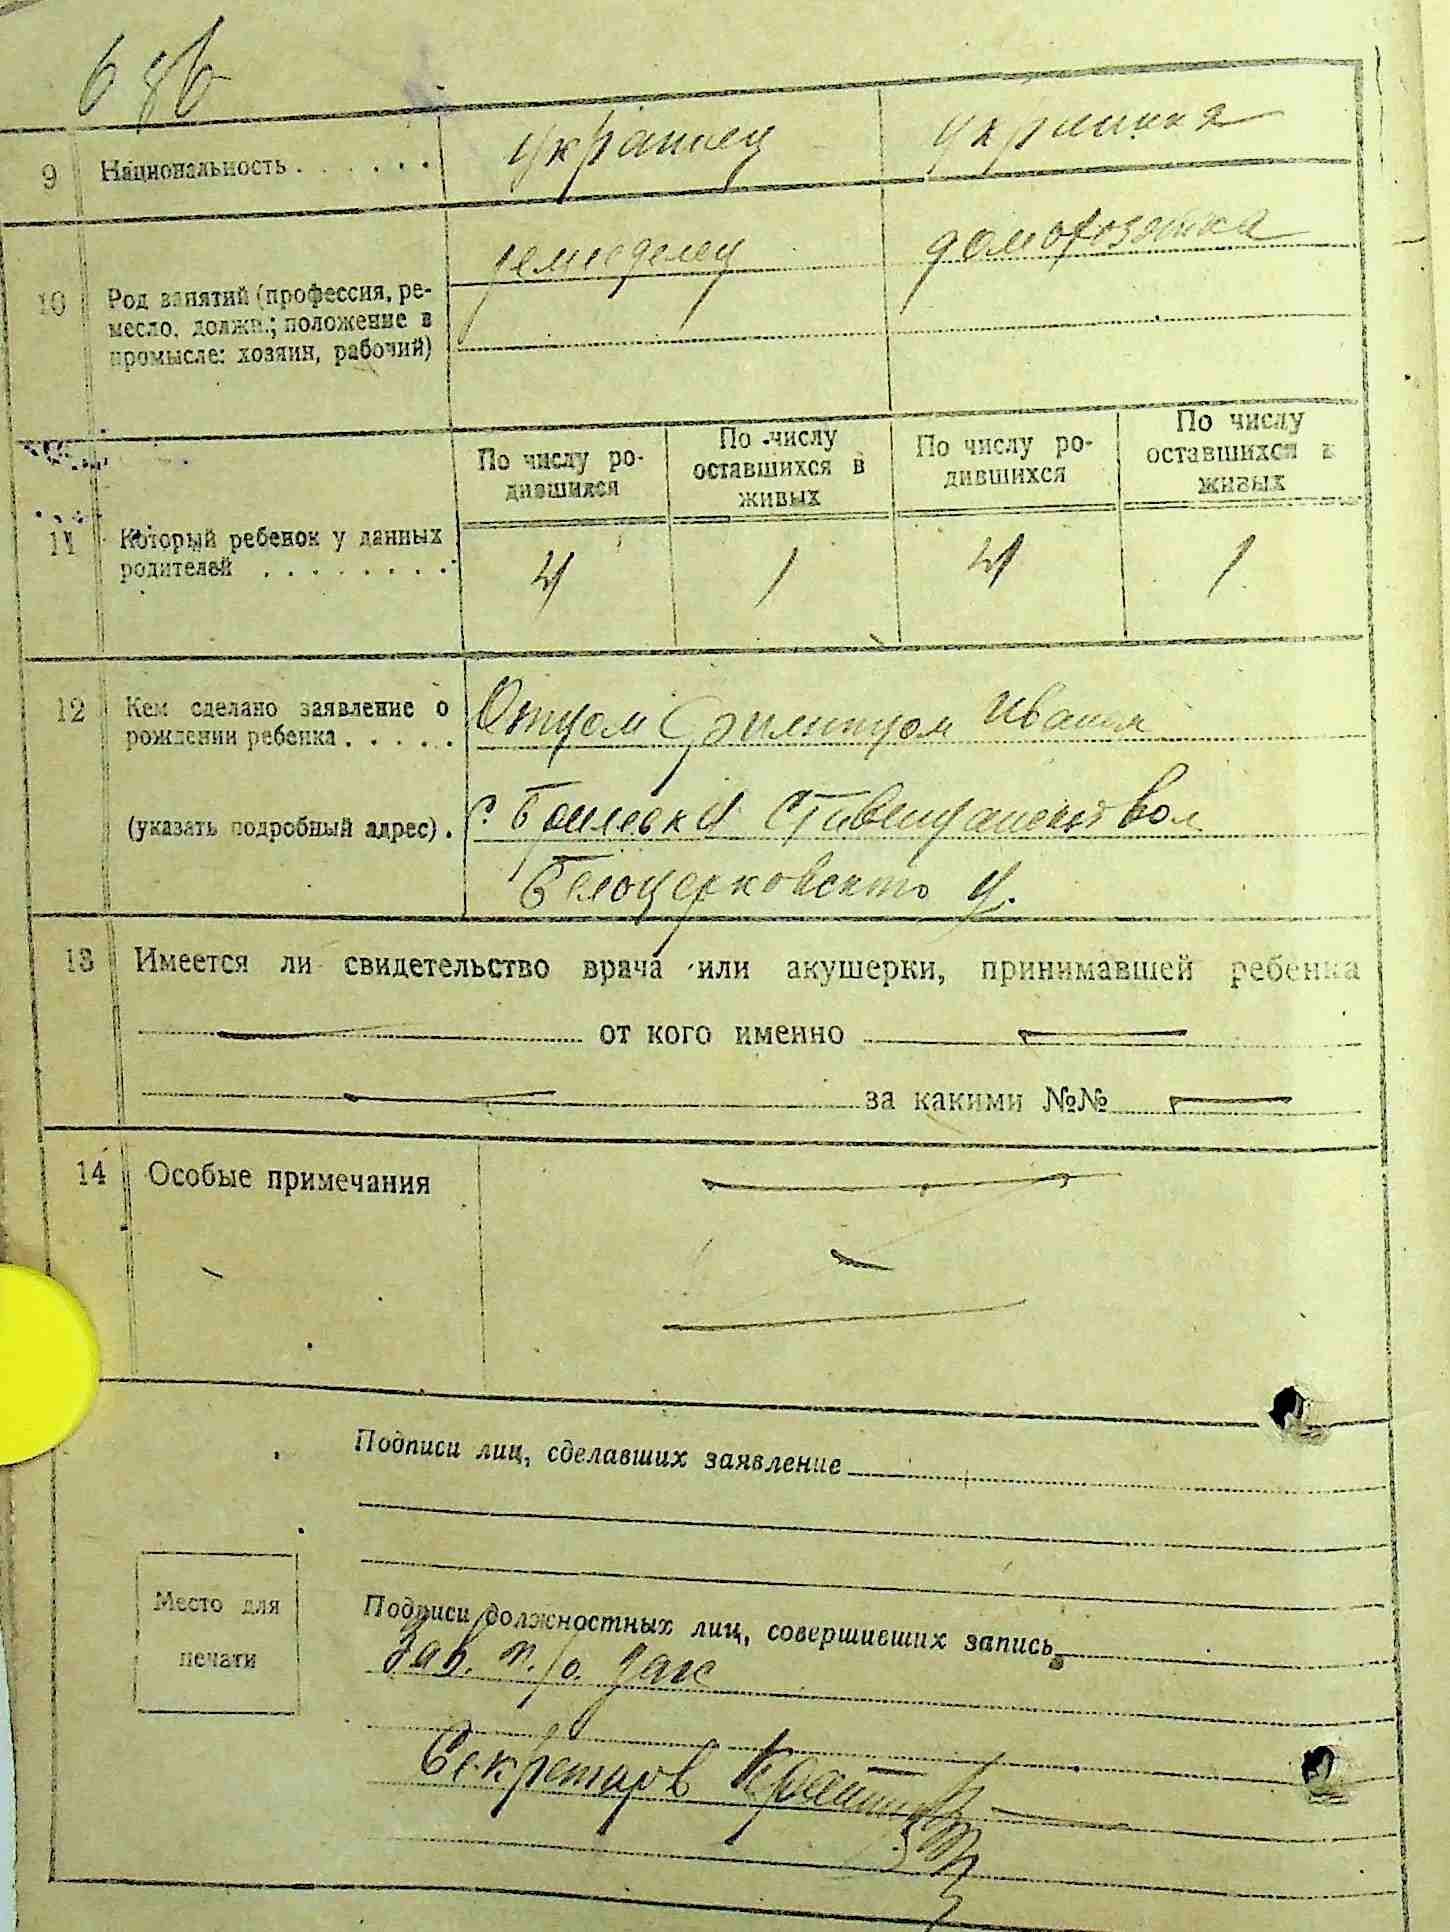 9 Национальность . . . . . . украинец украинка
10 Род занятий (профессия, ре-
месло, должн.; положение в
промысле: хозяин, рабочий)
земледелец домохозяйка
По числу ро-
дившихся
По числу
оставшихся в
живых
По числу ро-
дившихся
По числу
оставшихся в
живых
11 Который ребенок у данных
родителей . . . . . . . .
4 1 4 1
12 Кем сделано заявление о
рождении ребенка . . . . .
Отцом
(указать подробный адрес) .
с.
Белоцерковского у.
13 Имеется ли свидетельство врача или акушерки, принимавшей ребенка
от кого именно
за какими №№
14 Особые примечания
Подписи лиц, сделавших заявление
Место для
печати
Подписи должностных лиц, совершивших запись
Зав. п/о
Секретарь